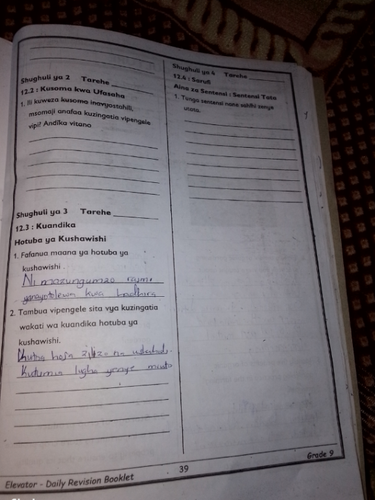 Shughuli ya 2 Tarehe
12.2 : Kusoma kwa Ufasaha
1. Ili kuweza kusoma inavyostahili,
msomaji anafaa kuzingatia vipengele
vipi? Andika vitano
Shughuli ya 3 Tarehe
12.3 : Kuandika
Hotuba ya Kushawishi
1. Fafanua maana ya hotuba ya
kushawishi.
Ni mazungumzo rasmi
yanayotolewa kwa hadhira
2. Tambua vipengele sita vya kuzingatia
wakati wa kuandika hotuba ya
kushawishi.
Kutumia lugha yenye mvuto
Shughuli ya 4 Tarehe
12.4 : Sarufi
Aina za Sentensi : Sentensi Tata
1. Tunga sentensi nane sahihi zenye
utata.
39
Elevator - Daily Revision Booklet
Grade 9